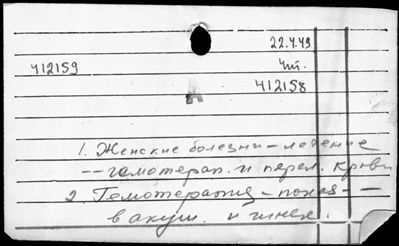 22.4.49
412159 Чит.
412158
А
1. Женские болезни – лечение
– гемотерап. и перел. крови
2. Гемотерапия – показ –
в акуш. и гинек.